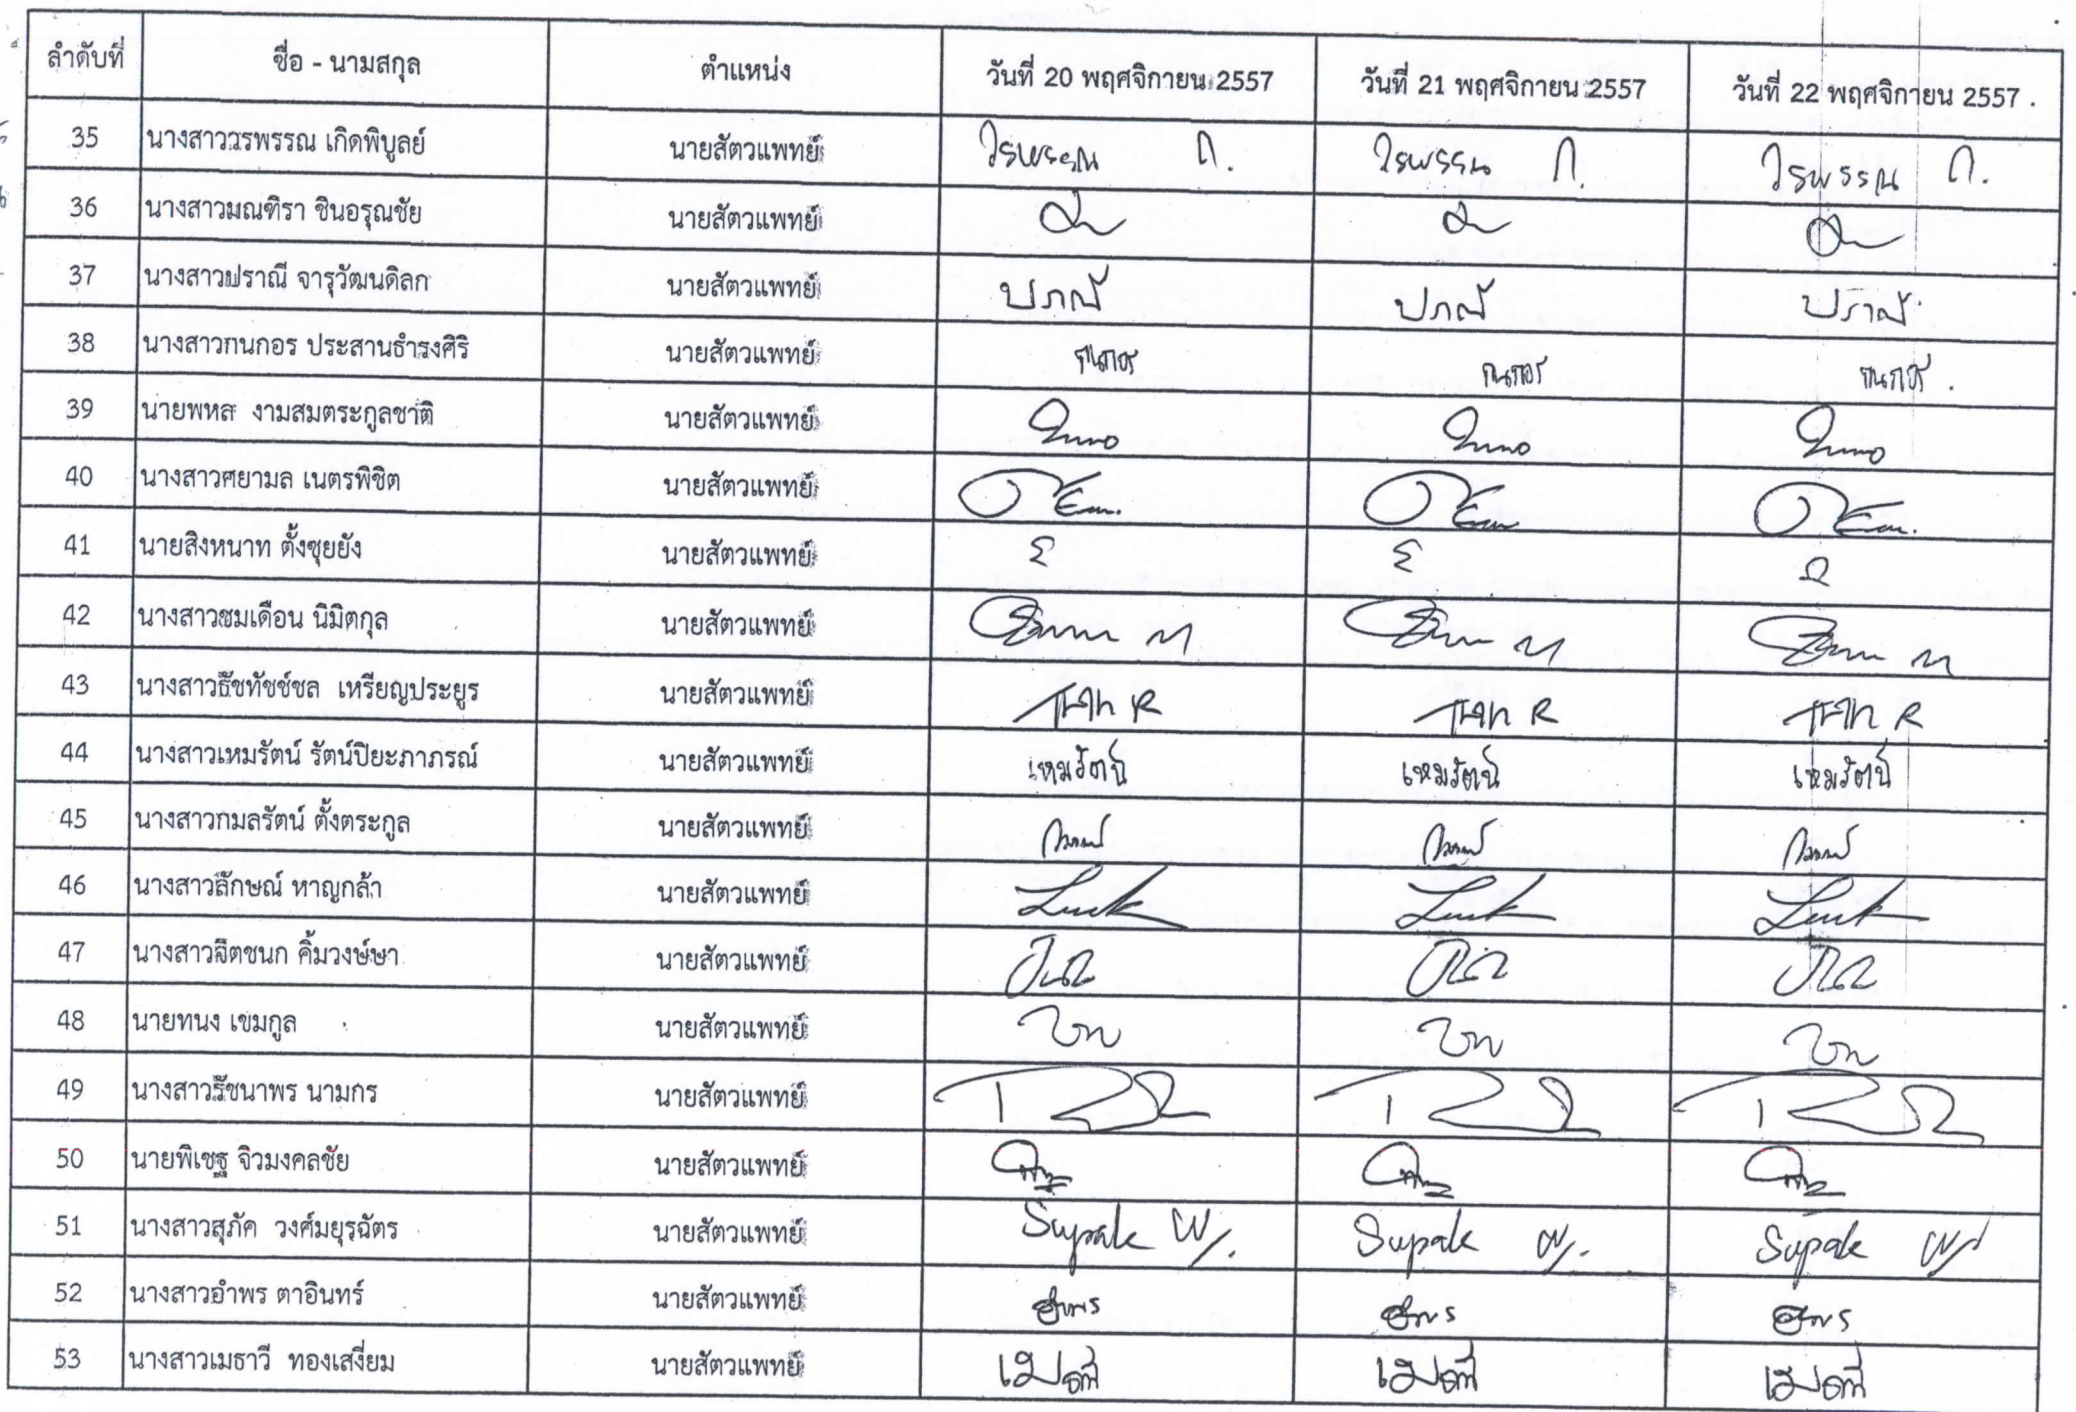 ลำดับที่ ชื่อ - นามสกุล ตำแหน่ง วันที่ 20 พฤศจิกายน 2557 วันที่ 21 พฤศจิกายน 2557 วันที่ 22 พฤศจิกายน 2557
35 นางสาววรพรรณ เกิดพิบูลย์ นายสัตวแพทย์ วรพรรณ ก. วรพรรณ ก. วรพรรณ ก.
36 นางสาวมณฑิรา ชินอรุณชัย นายสัตวแพทย์
37 นางสาวปราณี จารุวัฒนดิลก นายสัตวแพทย์ ปราณี ปราณี ปราณี
38 นางสาวกนกอร ประสานธำรงศิริ นายสัตวแพทย์ กนกอร กนกอร กนกอร
39 นายพหล งามสมตระกูลชาติ นายสัตวแพทย์
40 นางสาวศยามล เนตรพิชิต นายสัตวแพทย์
41 นายสิงหนาท ตั้งซุยยัง นายสัตวแพทย์
42 นางสาวชมเดือน นิมิตกุล นายสัตวแพทย์
43 นางสาวธัชทัชช์ชล เหรียญประยูร นายสัตวแพทย์
44 นางสาวเหมรัตน์ รัตน์ปิยะภาภรณ์ นายสัตวแพทย์ เหมรัตน์ เหมรัตน์ เหมรัตน์
45 นางสาวกมลรัตน์ ตั้งตระกูล นายสัตวแพทย์
46 นางสาวลักษณ์ หาญกล้า นายสัตวแพทย์ Luck Luck Luck
47 นางสาวจิตชนก คิ้มวงษ์ษา นายสัตวแพทย์
48 นายทนง เขมกูล นายสัตวแพทย์
49 นางสาวรัชนาพร นามกร นายสัตวแพทย์
50 นายพิเชฐ จิวมงคลชัย นายสัตวแพทย์
51 นางสาวสุภัค วงศ์มยุรฉัตร นายสัตวแพทย์ Supak W. Supak W. Supak W.
52 นางสาวอำพร ตาอินทร์ นายสัตวแพทย์ อำพร อำพร อำพร
53 นางสาวเมธาวี ทองเสงี่ยม นายสัตวแพทย์